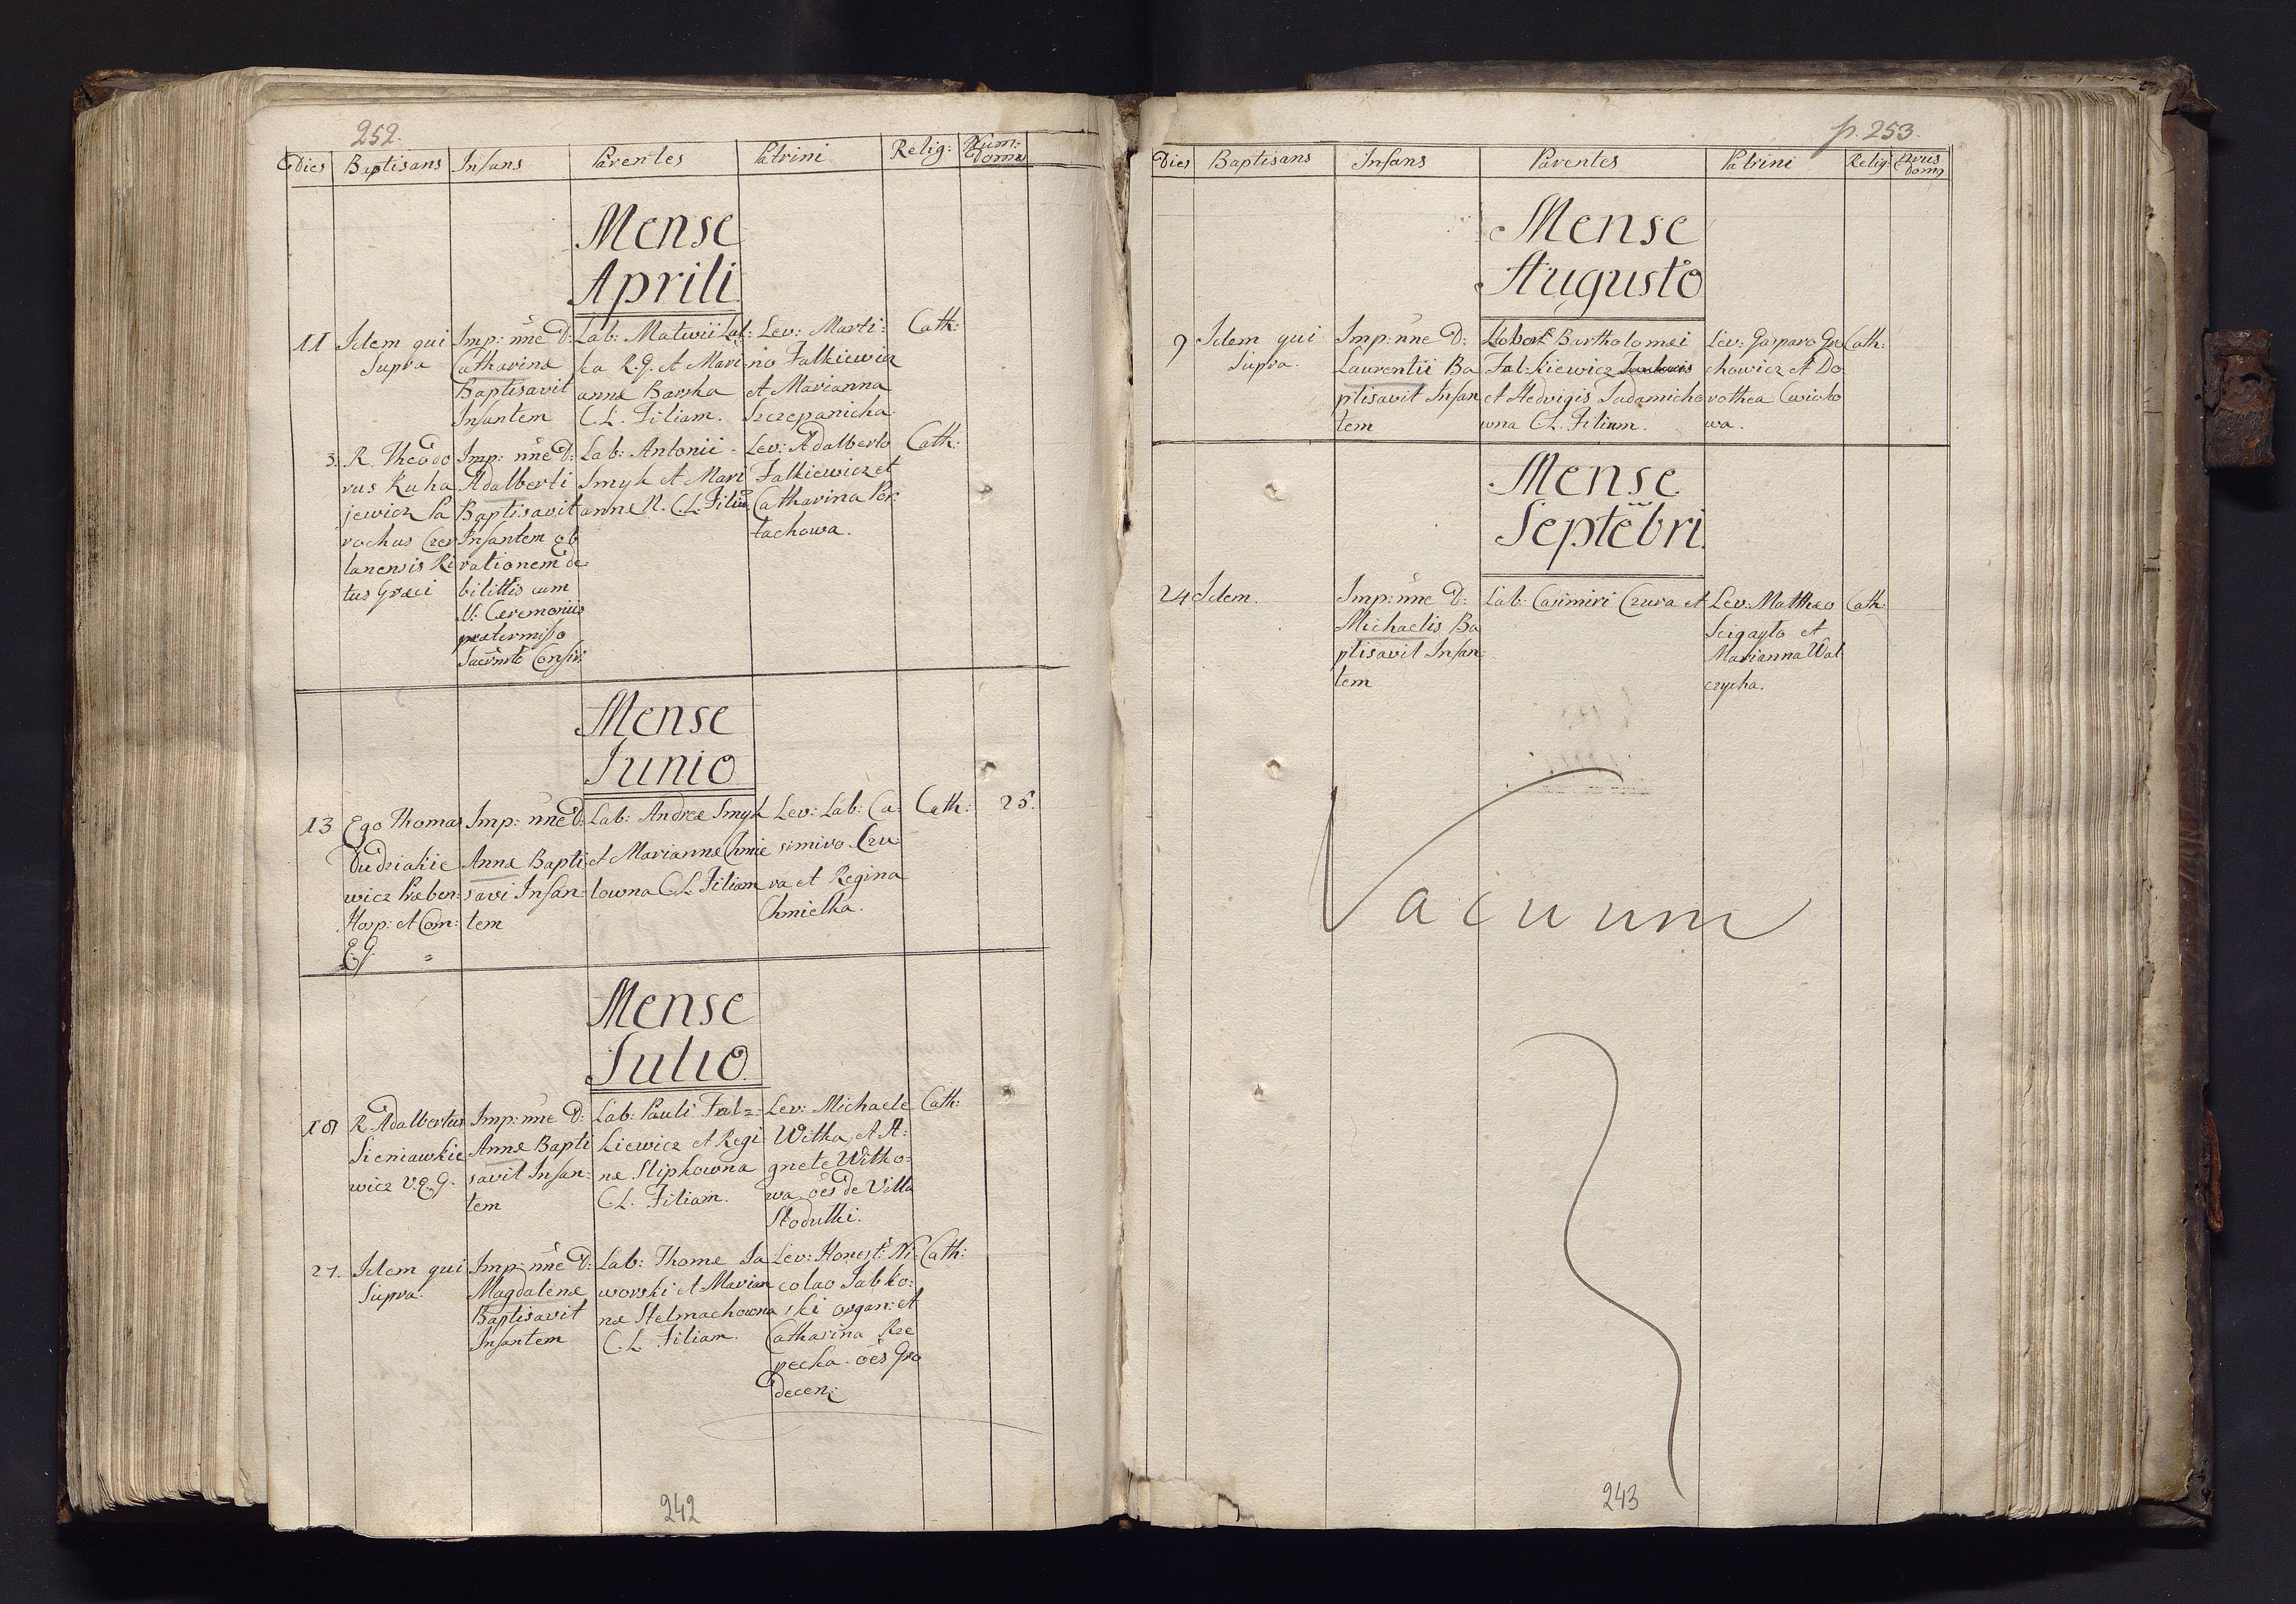 252.
Dies Baptisans Infans Parentes Patrini Relig: Num: Domus
Mense
Aprili
11 Idem qui Supra
Imp: nne D:
Catharinæ
Baptisavit
Infantem
Lab: Matwii Lal:
ka R.G. et Mari:
annæ Barska
C.L. Filiam.
Lev: Marti:
no Falkiewicz
et Marianna
Szczepanicha
Cath:
3. R. Theodo
rus Kuha
jewicz Pa
rochus Czer
lanensis Ri
tus Græci
Imp: nne D:
Adalberti
Baptisavit
Infantem ob
rationem de
bilittis cum
N: Ceremoniis
prætermisso
Sacrmto Confir:
Lab: Antonii
Smyk et Mari
annæ N. C.L. Filiu
Lev: Adalberto
Falkiewicz et
Catharina Per:
tachowa.
Cath:
Mense
Junio
13 Ego Thomas
Dudziakie
wicz Præben:
Hosp: et Com:
E.G.
Imp: nne D:
Annæ Bapti
savi Infan:
tem
Lab: Andreæ Smyk
et Mariannæ Chmie
lowna C.L. Filiam
Lev: Lab: Ca:
simiro Czu:
ra et Regina
Chmielka.
Cath: 25.
Mense
Julio.
18 R. Adalbertus
Sieniawkie
wicz V.E.G.
Imp: nne D:
Annæ Bapti
savit Infan:
tem
Lab: Pauli Fal=
kiewicz et Regi
næ Slipkowna
C.L. Filiam.
Lev: Michaele
Witka, et A:
gnete Witko:
wa oes de Villa
Stodulki.
Cath:
21. Idem qui
Supra.
Imp: nne D:
Magdalenæ
Baptisavit
Infantem
Lab: Thomæ Ja
worski et Marian
næ Stelmachowna
C.L. Filiam.
Lev: Honest: Ni:
colao Jabko:
ski organ: et
Catharina Rze
pecka. oes Gro
decen:
Cath:
242
p. 253.
Dies Baptisans Infans Parentes Patrini Relig: Nrus Domus
Mense
Augusto
9 Idem qui
Supra.
Imp: nne D:
Laurentii Ba
ptisavit Infan
tem
Labor: Bartholomæi
Falkiewicz
et Hedvigis Sadamicho
wna C.L. Filium.
Lev: Gasparo Gro
chowicz et Do
rothea Cwioko
wa.
Cath:
Mense
Septembri.
24 Idem.
Imp: nne D:
Michaelis Ba
ptisavit Infan:
tem
Lab: Casimiri Czura et
Lev: Matthæo
Scigayto et
Marianna Wal
czycha.
Cath:
Vacuum
243